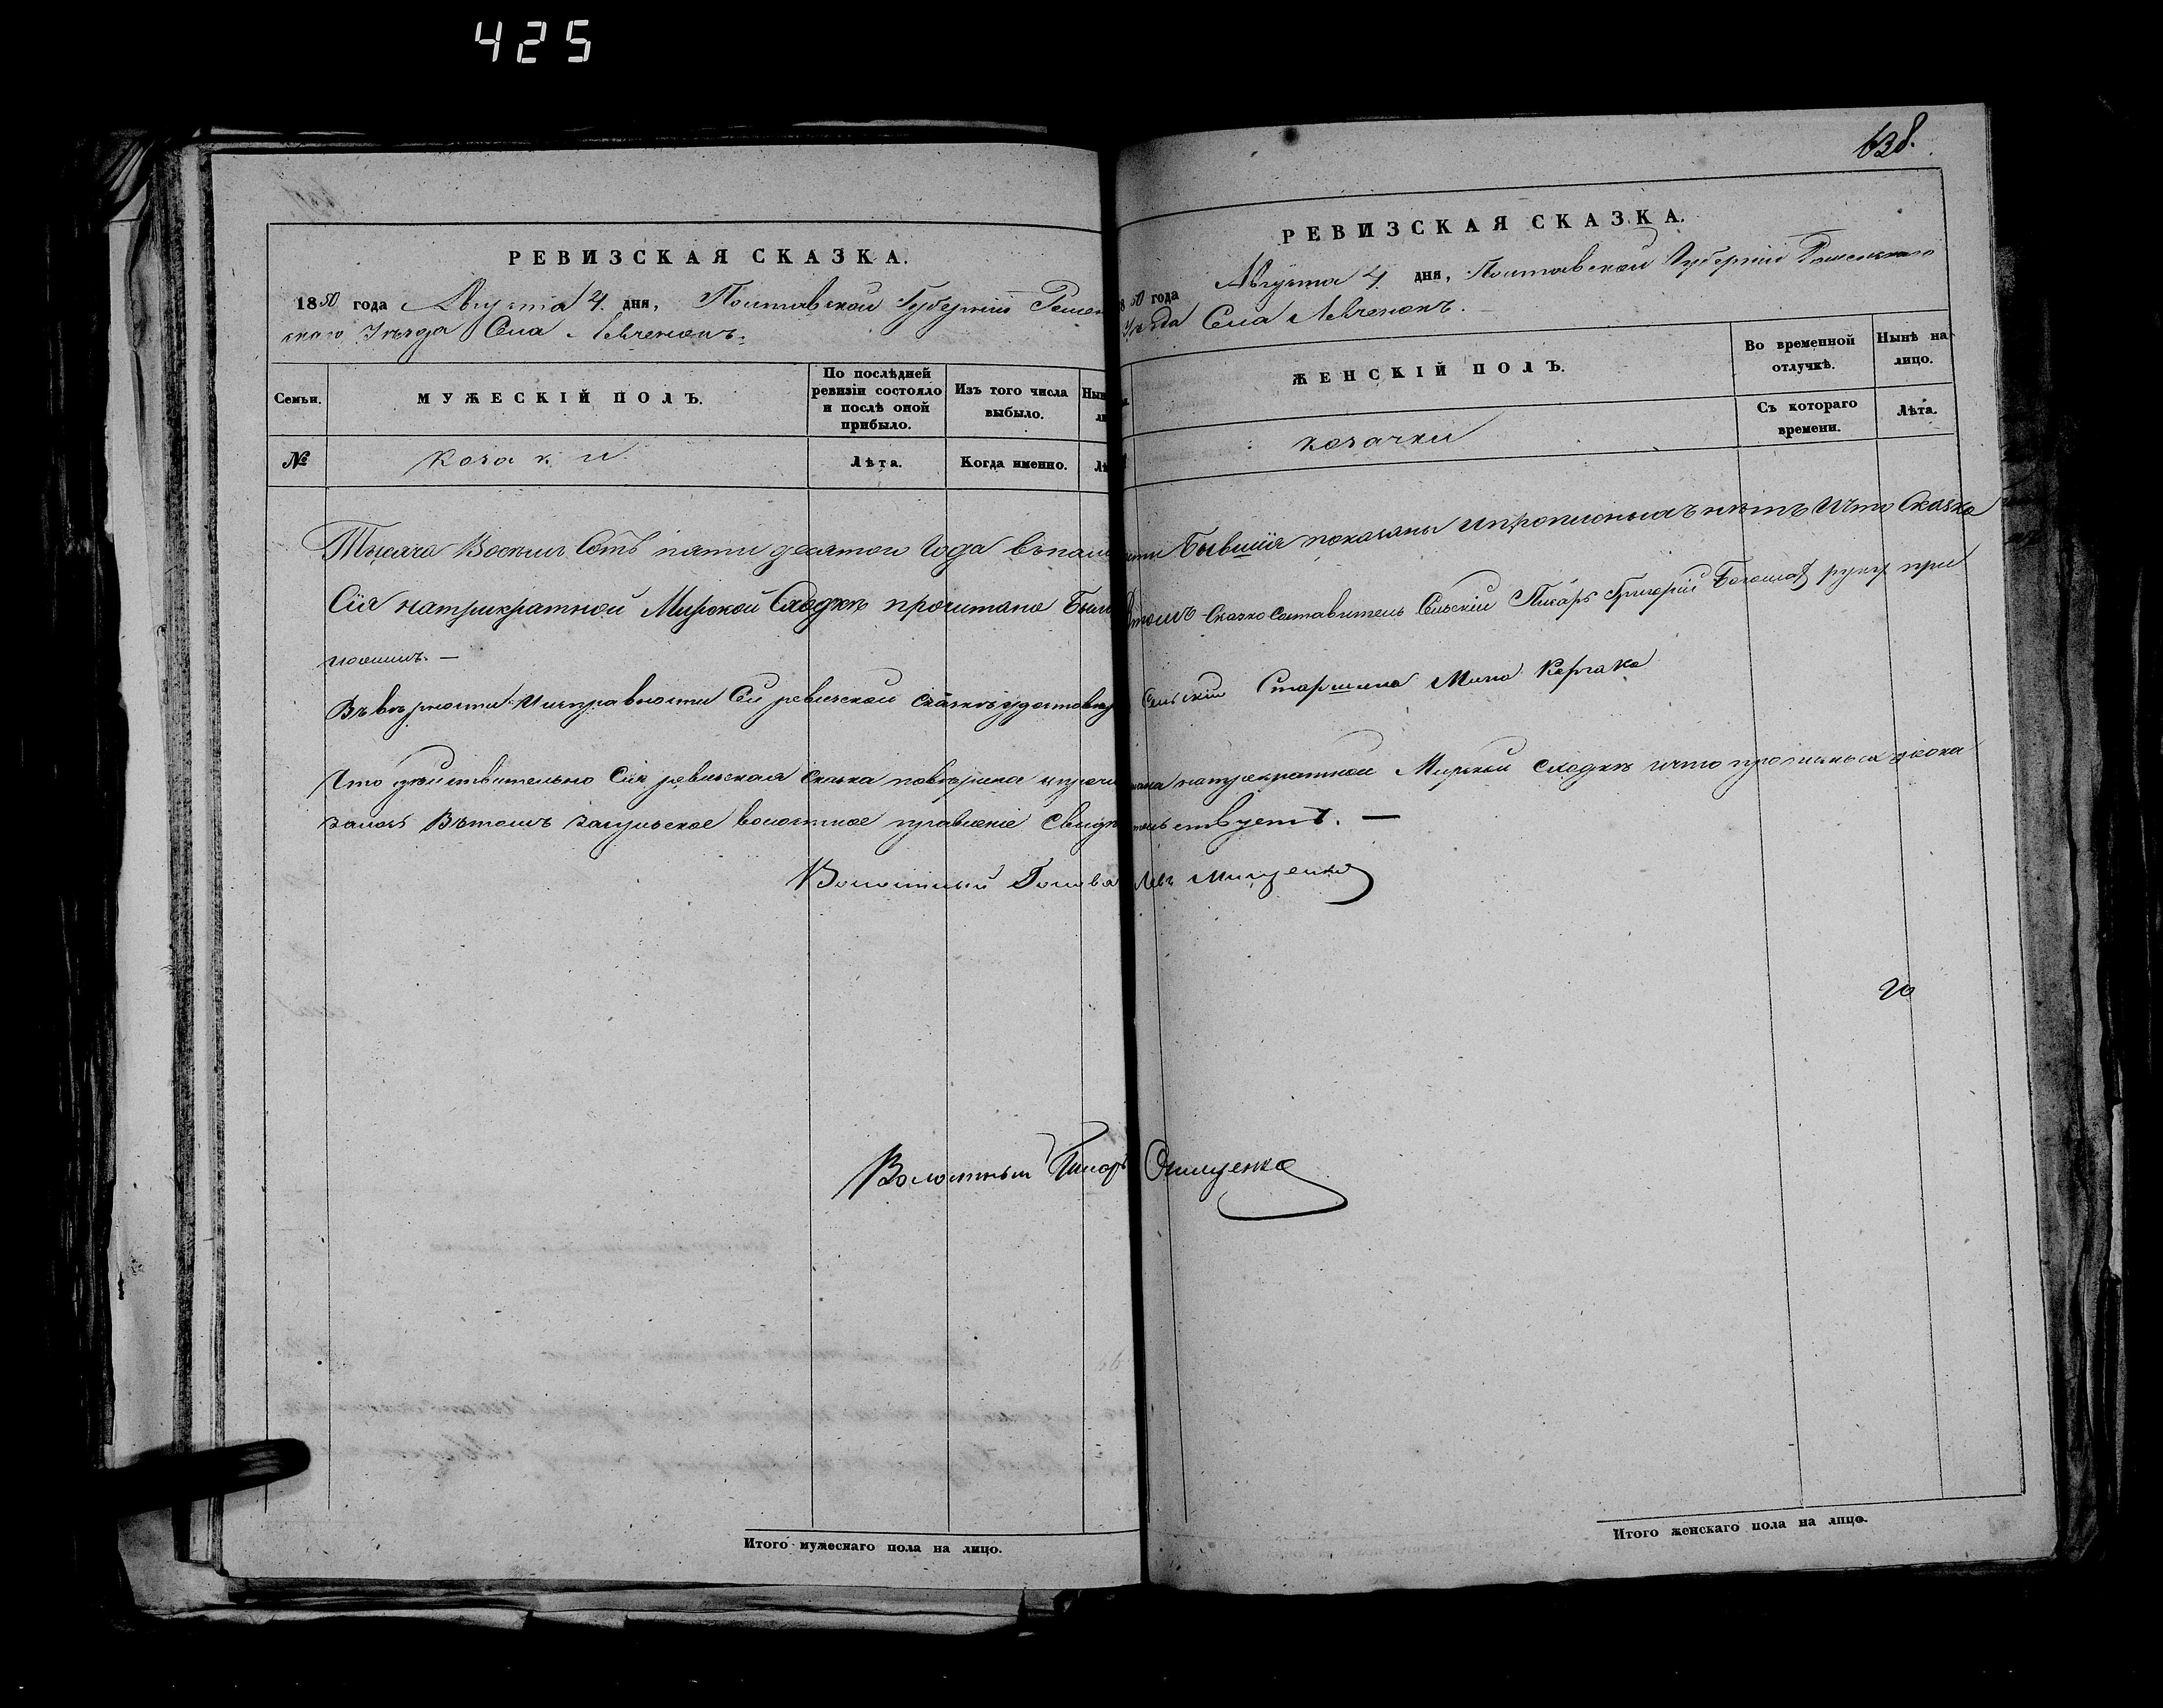 425
638.
РЕВИЗСКАЯ СКАЗКА.
1850 года Августа 4. дня, Полтавской Губерніи Ромен
скаго Уѣзда Села Левченокъ.
Семьи.
МУЖЕСКІЙ ПОЛЪ.
По послѣдней ревизіи состояло и послѣ оной прибыло.
Изъ того числа выбыло.
№
Козаки
Лѣта.
Когда именно.
РЕВИЗСКАЯ СКАЗКА.
50 года Августа 4 дня, Полтавской Губерніи Роменскаго
Уѣзда Села Левченокъ.
ЖЕНСКІЙ ПОЛЪ.
Во временной отлучкѣ.
Нынѣ на лицо.
Съ котораго времени.
Лѣта.
козачки
Тысяча Восемь Сотъ пяти десятого Года Бывшія показаны и прописныхъ нѣтъ Ичто Сказка
Сія натрикратной Мирской Сходкѣ прочитана Была Втомъ Сказко Составитель Сельскій Писарь Григорій руку при
ложилъ. —
Въ вѣрности Иисправности Сей ревизской сказки Сельскій Старшина
Что дѣйствительно Сія ревизская сказка повѣрина ипрочитана натрикратной Мирской сходкѣ ичто прописныхъ
Вѣтомъ волостное правленіе Свидѣтельствуетъ. —
Волостный Голова Левъ Мищенко
20
Волостный Писарь Онищенко
Итого мужескаго пола на лицо.
Итого женскаго пола на лицо.